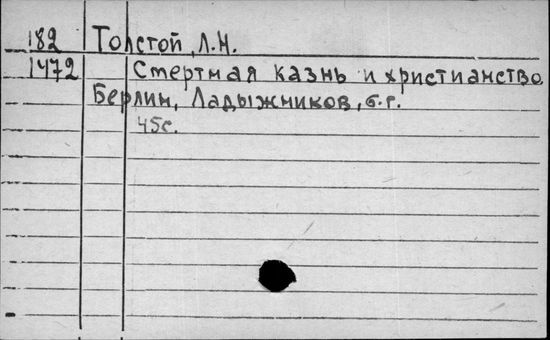 182 Толстой, Л.Н.
1472 Смертная казнь и христианство
Берлин, Ладыжников, б.г.
45с.